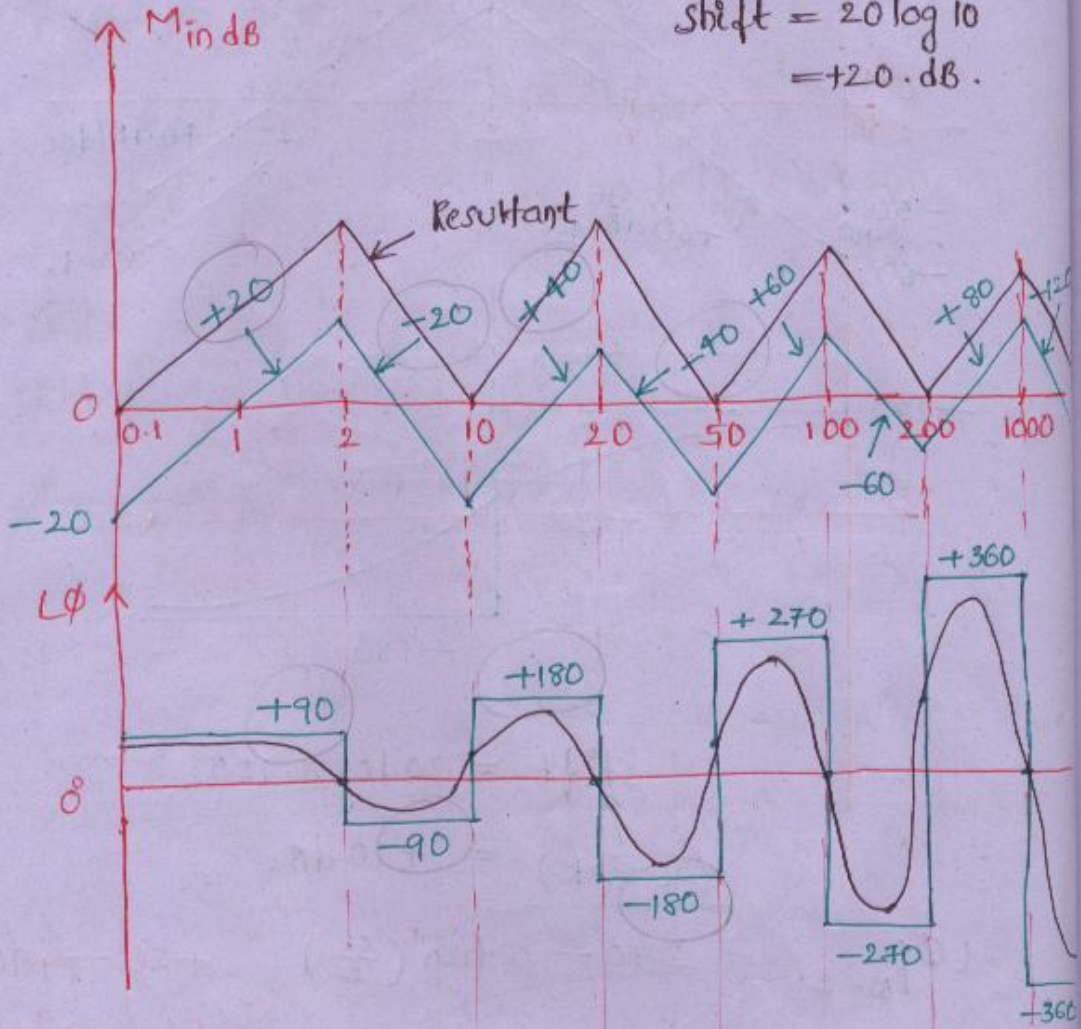 M in dB
shift = 20 log 10
= +20 . dB .
Resultant
+20
-20
+40
-40
+60
+80
-120
0
0.1 1 2 10 20 50 100 200 1000
-60
-20
LØ
+360
+270
+180
+90
0°
-90
-180
-270
+360